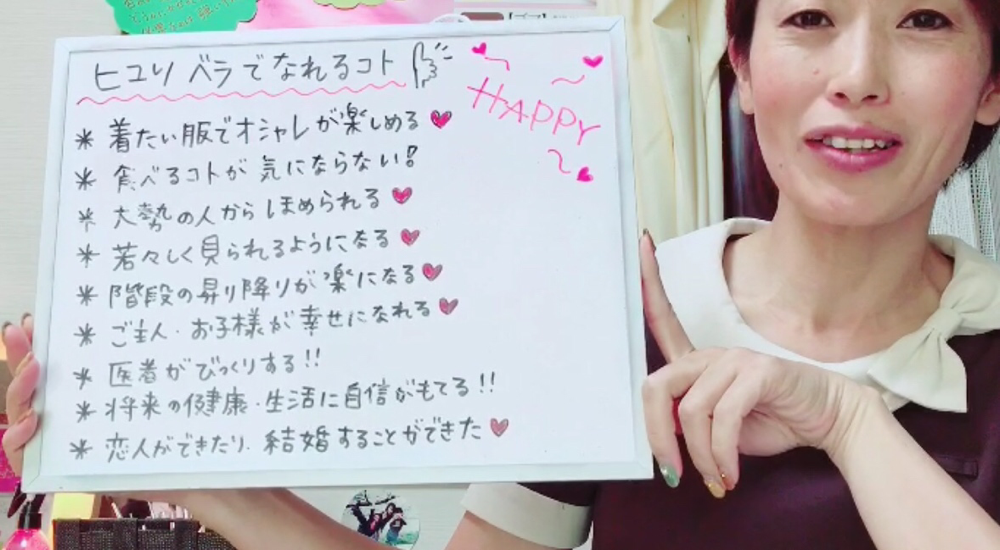 ヒユリ ベラでなれるコト
HAPPY
* 着たい服でオシャレが楽しめる
* 食べるコトが気にならない!
* 大勢の人からほめられる
* 若々しく見られるようになる
* 階段の昇り降りが楽になる
* ご主人・お子様が幸せになれる
* 医者がびっくりする!!
* 将来の健康・生活に自信がもてる!!
* 恋人ができたり、結婚することができた